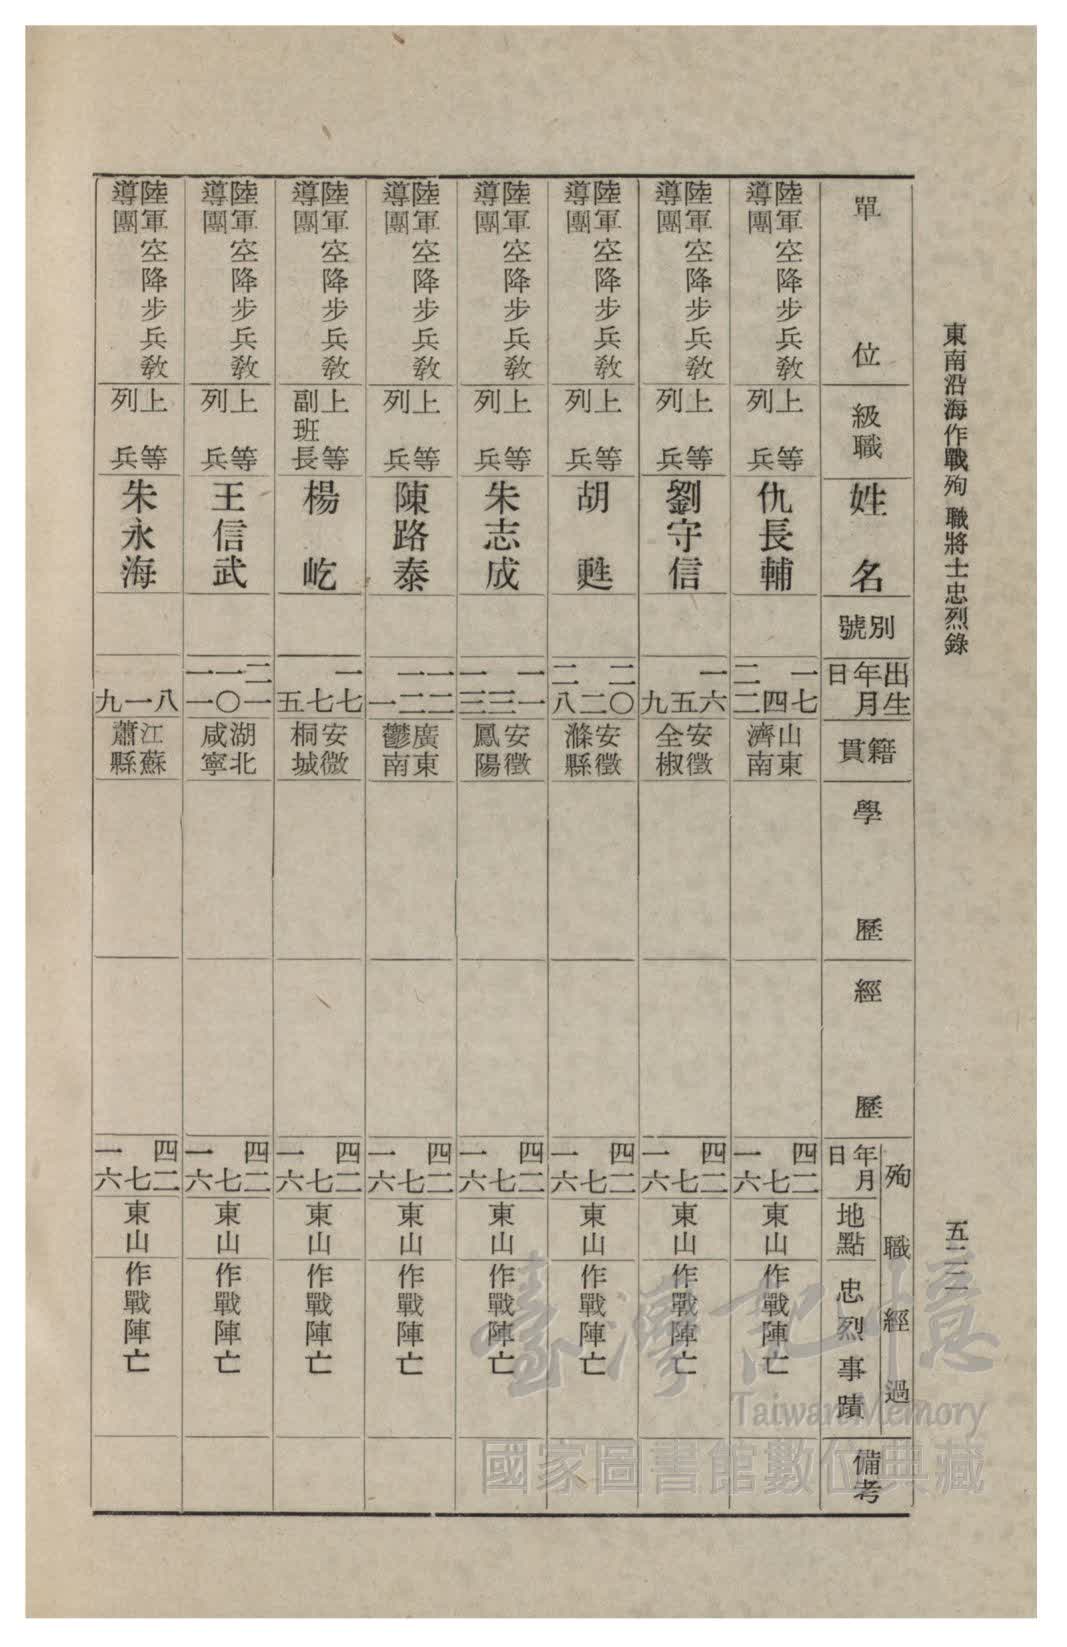 東南沿海作戰殉職將士忠烈錄
五二二
單位
級職
姓名
別號
出生年月日
籍貫
學歷
經歷
殉職經過
年月日
地點
忠烈事蹟
備考
陸軍空降步兵教導團
上等列兵
仇長輔
一七 四 二二
山東濟南
四二 七 一六
東山
作戰陣亡
陸軍空降步兵教導團
上等列兵
劉守信
一六 五 九
安徽全椒
四二 七 一六
東山
作戰陣亡
陸軍空降步兵教導團
上等列兵
胡甦
二〇 二 二八
安徽滁縣
四二 七 一六
東山
作戰陣亡
陸軍空降步兵教導團
上等列兵
朱志成
一一 三 一三
安徽鳳陽
四二 七 一六
東山
作戰陣亡
陸軍空降步兵教導團
上等列兵
陳路泰
一二 一二 一
廣東鬱南
四二 七 一六
東山
作戰陣亡
陸軍空降步兵教導團
上等副班長
楊屹
一七 七 五
安徽桐城
四二 七 一六
東山
作戰陣亡
陸軍空降步兵教導團
上等列兵
王信武
二一 一〇 一一
湖北咸寧
四二 七 一六
東山
作戰陣亡
陸軍空降步兵教導團
上等列兵
朱永海
八 一 九
江蘇蕭縣
四二 七 一六
東山
作戰陣亡
臺灣記憶
Taiwan Memory
國家圖書館數位典藏